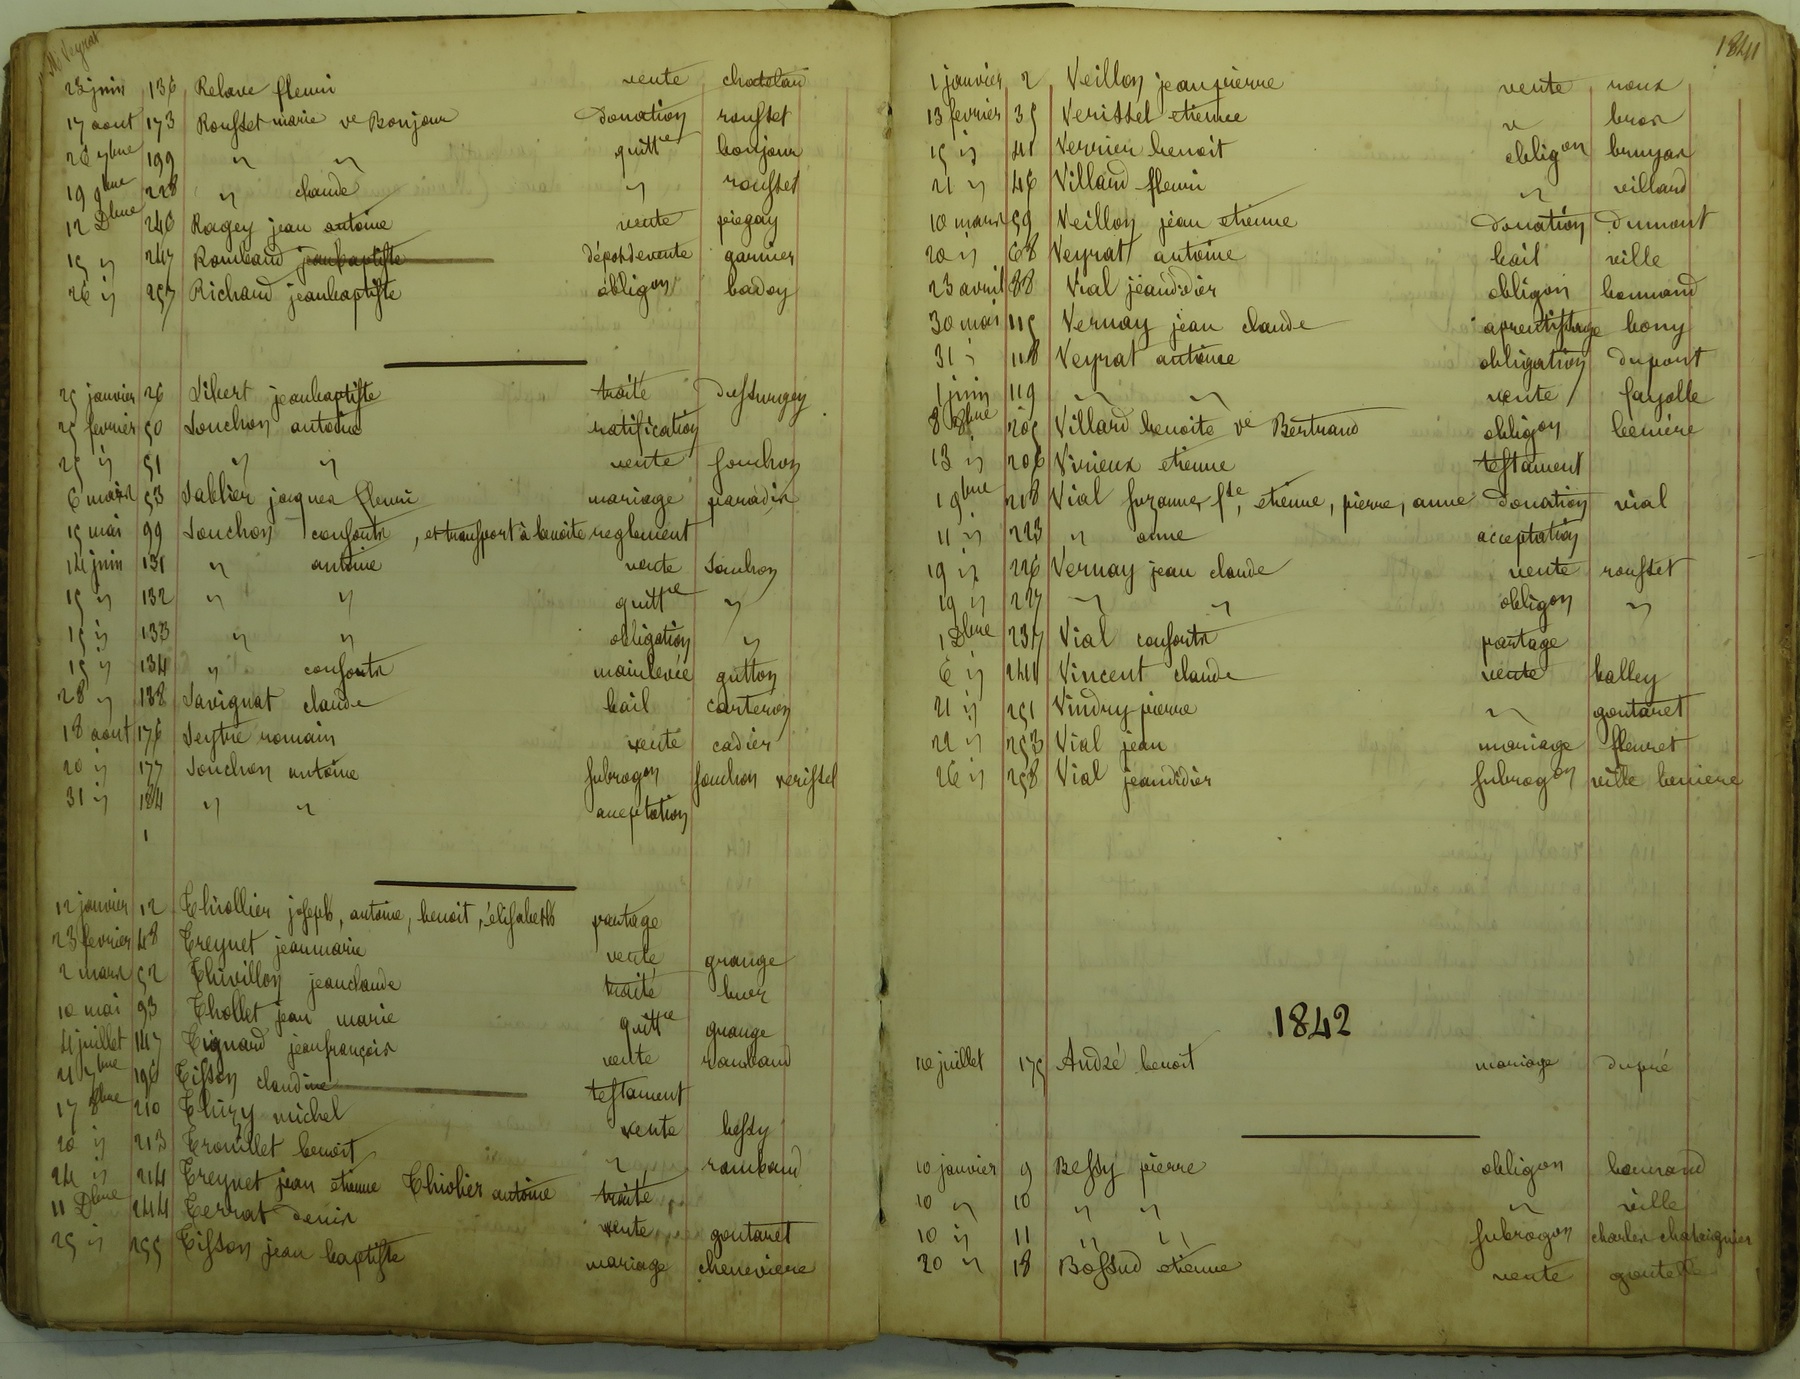 M. Veyrat
23 juin 136 Relave fleuri vente chatelan
17 aout 173 Rousset marie ve Bonjour Donation rousset
26 7bre 199 " " quittce bonjour
19 9bre 228 " claude " rousset
12 Dbre 246 Ragey jean antoine vente piegay
15 " 247 Rombaud jeanbaptiste dépotdevente garnier
26 " 257 Richaud jeanbaptiste obligon badoy
25 janvier 26 Sibert jeanbaptiste traité dussurgey
25 fevrier 50 Souchon antoine ratification
25 " 51 " " vente souchon
6 mars 53 Sablier jacques fleuri mariage paradis
15 mai 99 Souchon consorts, et transport à benoite reglement
14 juin 131 " antoine vente Souchon
15 " 132 " " quittce "
15 " 133 " " obligation "
15 " 134 " consorts mainlevée gutton
28 " 138 Savignat claude bail carteron
18 aout 176 Seytre romain vente cadier
20 " 177 Souchon antoine subrogon souchon verissel
31 " 184 " " acceptation
1
12 janvier 12 Thiollier joseph, antoine, benoit, élisabeth partage
23 fevrier 48 Treynet jeanmarie vente grange
2 mars 52 Thivillon jeanclaude traité
10 mai 93 Thollet jean marie quittce grange
4 juillet 147 Tignard jeanfrançois vente rambaud
21 7bre 196 Tisson claudine testament
17 8bre 210 Thizy michel vente bessy
20 " 213 Trouillet benoit " rambaud
24 " 214 Treynet jean etienne Thiolier antoine traité
11 Dbre 244 Terrat denis vente goutaret
25 " 255 Tisson jean baptiste mariage cheneviere
1841
1 janvier 2 Veillon jeanpierre vente roux
13 fevrier 35 Verissel etienne " bros
15 " 41 Verrier benoit obligon bruyas
21 " 46 Villard fleuri " villard
10 mars 59 Veillon jean etienne Donation Dumont
20 " 68 Veyrat antoine bail ville
23 avril 88 Vial jeandidier obligon bonnand
30 mai 115 Vernay jean claude aprentissage bony
31 " 118 Veyrat antoine obligation dupont
1 juin 119 " " vente fayolle
8 8bre 205 Villard benoite ve Bertrand obligon beniere
13 " 206 Virieux etienne testament
1 9bre 218 Vial suzanne, fse, etienne, pierre, anne Donation vial
11 " 223 " anne acceptation
19 " 226 Vernay jean claude vente rousset
19 " 227 " " obligon "
1 Dbre 237 Vial consorts partage
6 " 241 Vincent claude vente balley
21 " 251 Vindry pierre " goutaret
22 " 253 Vial jean mariage fleuret
26 " 258 Vial jeandidier subrogon ville beniere
1842
10 juillet 175 André benoit mariage dupré
10 janvier 9 Bessy pierre obligon bonnand
10 " 10 " " " ville
10 " 11 " " subrogon charles chataignier
20 " 18 Bossud etienne vente